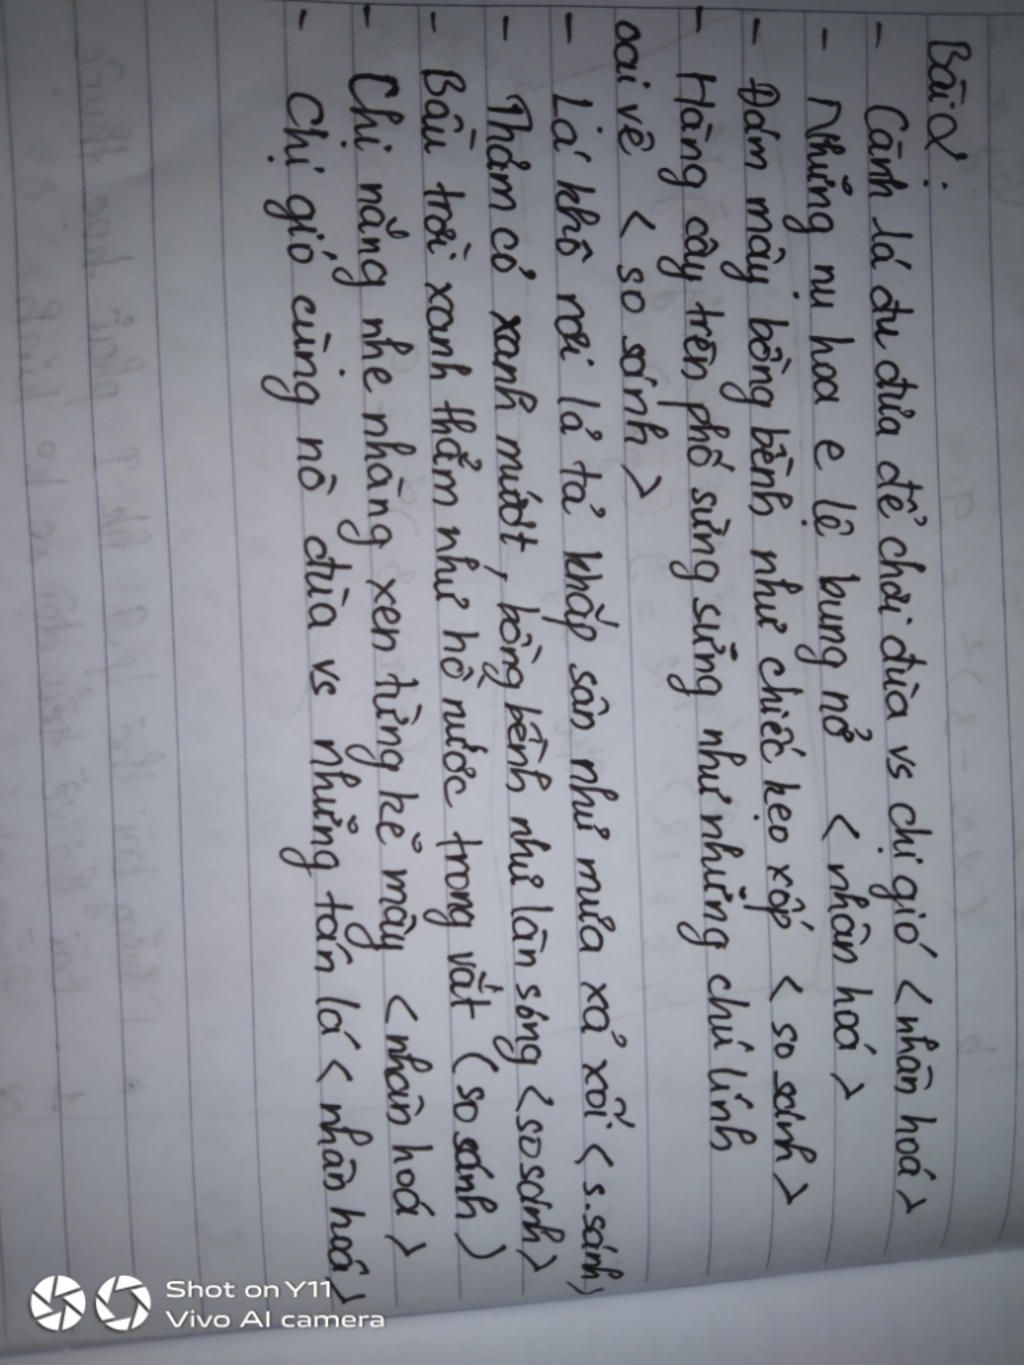 Bài 2:
- Cành lá đu đưa để chơi đùa vs chị gió < nhân hoá >
- Những nụ hoa e lệ bung nở < nhân hoá >
- Đám mây bồng bềnh như chiếc kẹo xốp < so sánh >
- Hàng cây trên phố sừng sững như những chú lính
oai vệ < so sánh >
- Lá khô rơi lả tả khắp sân như mưa xả xối < s.sánh )
- Thảm cỏ xanh mướt, bồng bềnh như làn sóng < so sánh >
- Bầu trời xanh thẳm như hồ nước trong vắt ( so sánh )
- Chị nắng nhẹ nhàng xen từng kẽ mây < nhân hoá >
- Chị gió cùng nô đùa vs những tán lá < nhân hoá >
Shot on Y11
Vivo AI camera